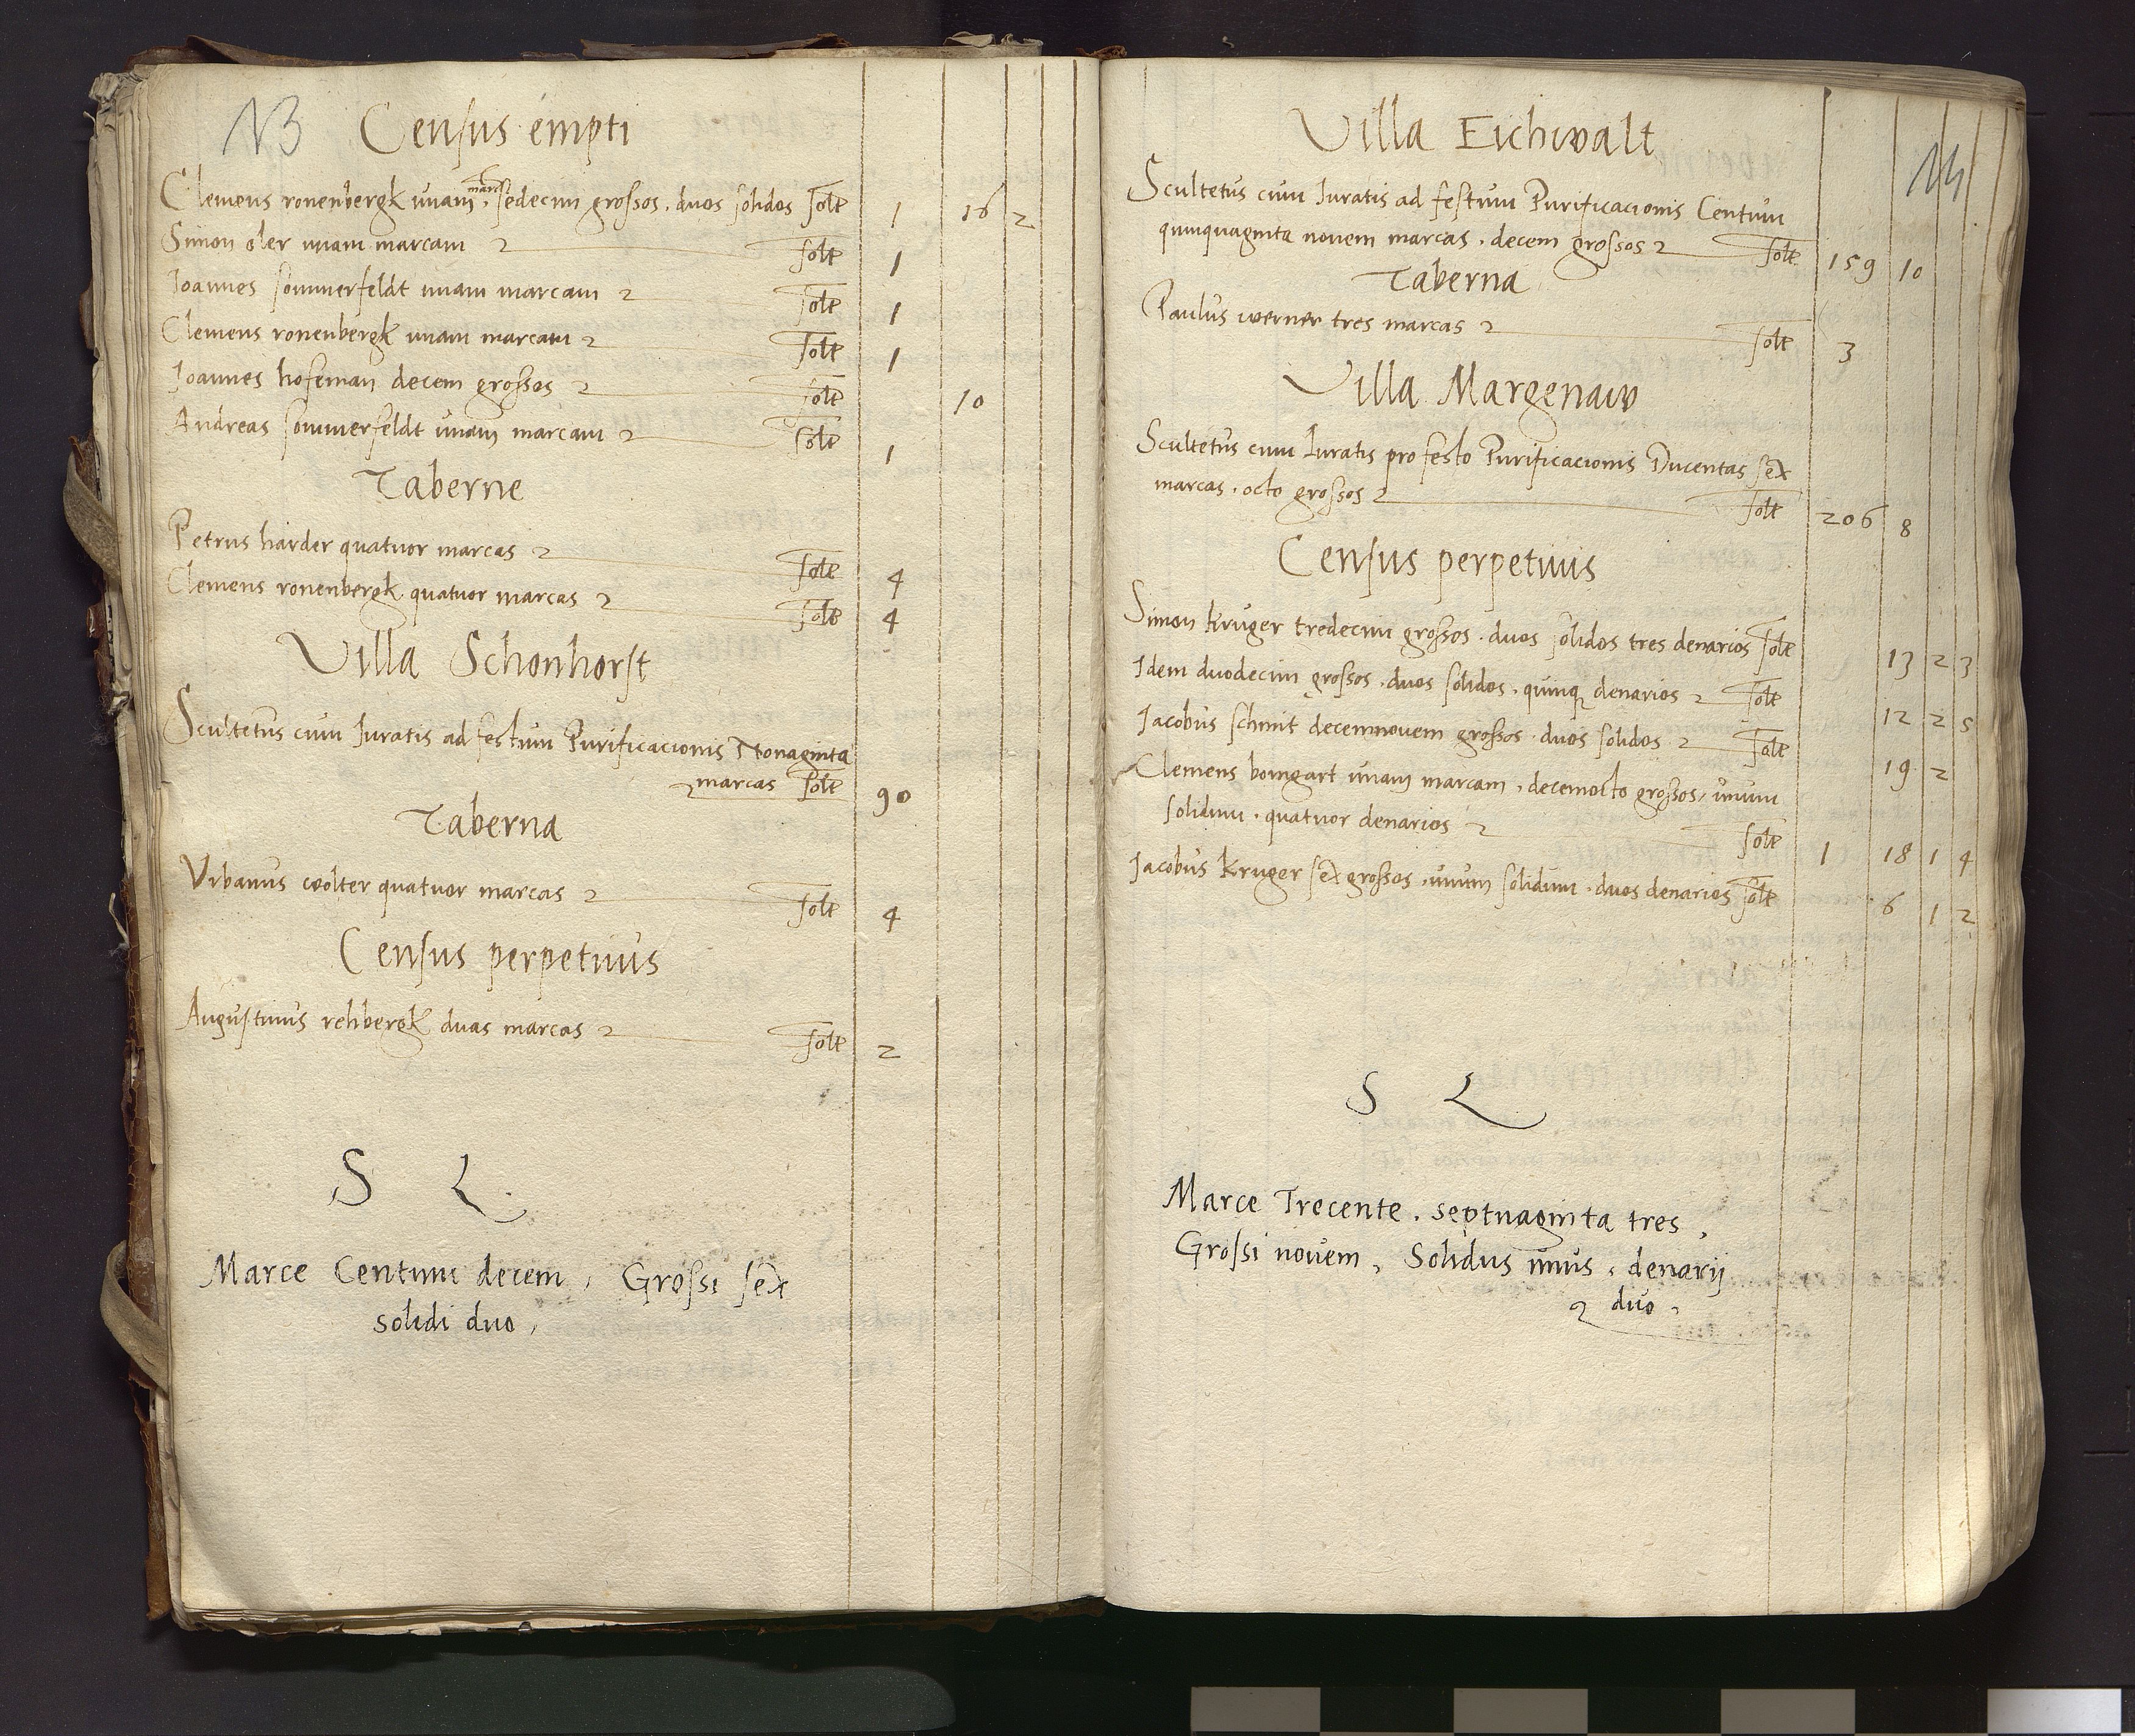 13
Census empti
Clemens ronenbergk unam marc. sedecim grossos. duos solidos solt 1 16 2
Simon oler unam marcam solt 1
Joannes sommerfeldt unam marcam solt 1
Clemens ronenbergk unam marcam solt 1
Joannes hofeman decem grossos solt 10
Andreas sommerfeldt unam marcam solt 1
Taberne
Petrus harder quatuor marcas solt 4
Clemens ronenbergk quatuor marcas solt 4
Villa Schonhorst
Scultetus cum Juratis ad festum Purificacionis Nonaginta
marcas solt 90
Taberna
Urbanus wolter quatuor marcas solt 4
Census perpetuus
Augustinus rehbergk duas marcas solt 2
S L
Marce Centum decem, Grossi sex
solidi duo,
14
Villa Eichwalt
Scultetus cum Juratis ad festum Purificacionis Centum
quinquaginta novem marcas. decem grossos solt 159 10
Taberna
Paulus werner tres marcas solt 3
Villa Margenaw
Scultetus cum Juratis pro festo Purificacionis Ducentas sex
marcas. octo grossos solt 206 8
Census perpetuus
Simon Kruger tredecim grossos. duos solidos tres denarios solt 13 2 3
Idem duodecim grossos. duos solidos. quinq denarios solt 12 2 5
Jacobus schmit decemnovem grossos. duos solidos solt 19 2
Clemens bomgart unam marcam, decemocto grossos, unum
solidum. quatuor denarios solt 1 18 1 4
Jacobus Kruger sex grossos. unum solidum. duos denarios solt 6 1 2
S L
Marce Trecente. septuaginta tres,
Grossi novem, Solidus unus, denarij
duo,